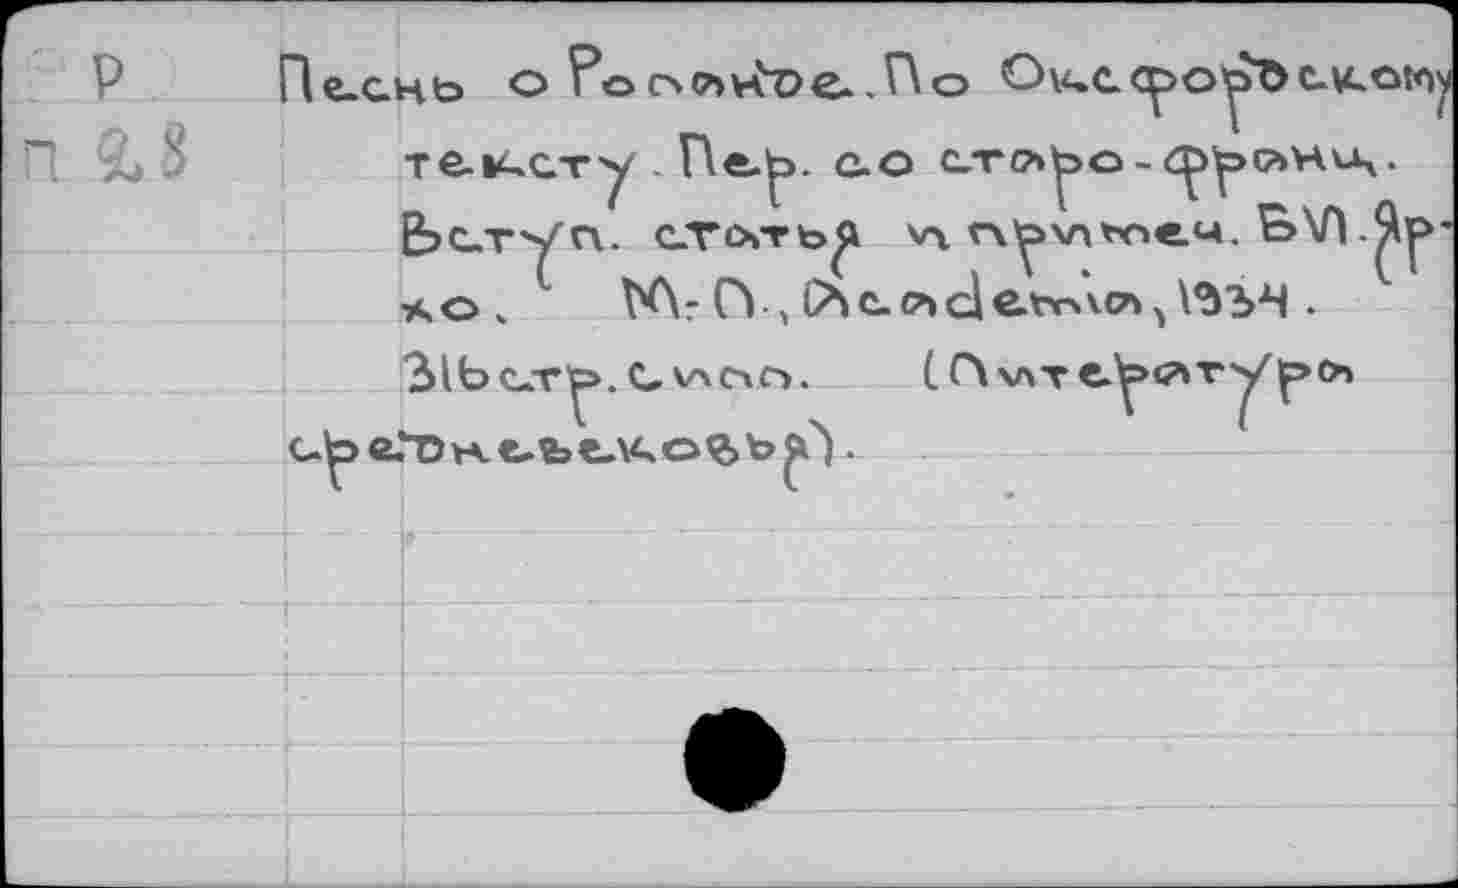 Р Песнь о Роланде. По Оксфордскому
П 28 тексту. Пер. со старо-франц.
Вступ. статья и примеч. Б.И. Яр-
хо. М.-Л., Academia, 1934.
316 стр. с илл. (Литература
средневековья).